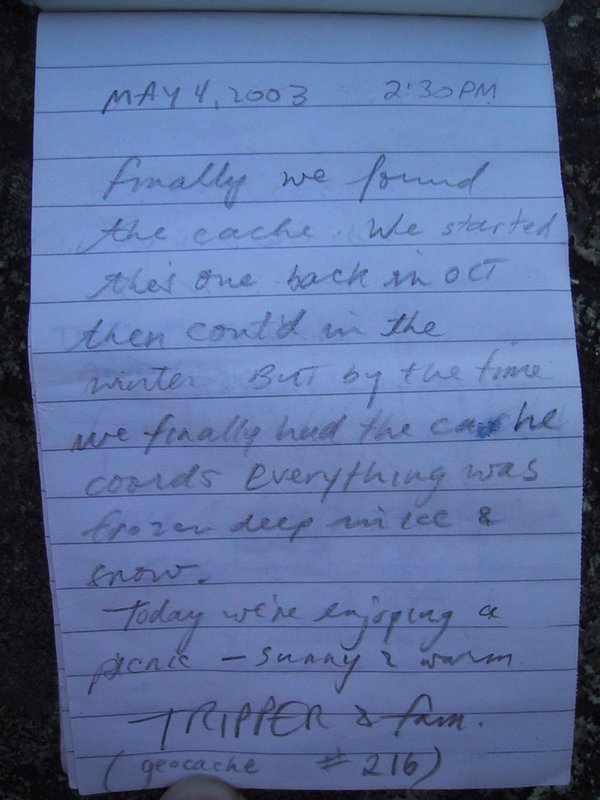 MAY 4, 2003 2:30PM
finally we found
the cache. We started
this one back in OCT
then cont'd in the
winter. But by the time
we finally had the cache
coords everything was
frozen deep in ice &
snow.
Today we're enjoying a
picnic - sunny & warm
TRIPPER & fam.
(geocache # 216)